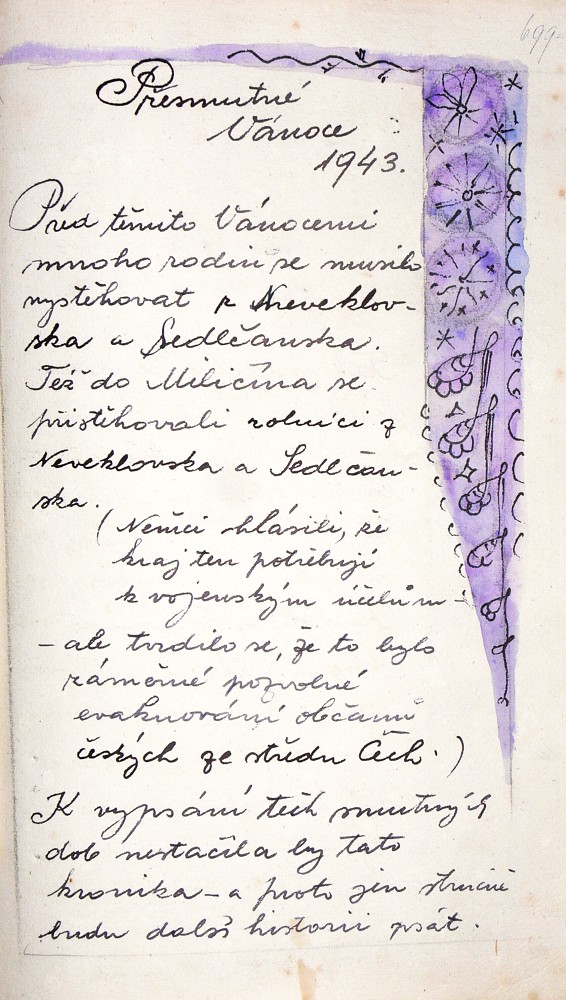 699
Přesmutné
Vánoce
1943.
Před těmito Vánocemi
mnoho rodin se musilo
vystěhovat z Neveklov-
ska a Sedlčanska.
Též do Miličína se
přistěhovali rolníci z
Neveklovska a Sedlčan-
ska.
(Němci hlásili, že
kraj ten potřebují
k vojenským účelům –
– ale tvrdilo se, že to bylo
záměrné pozvolné
evakuování občanů
českých ze středu Čech.)
K vypsání těch smutných
dob nestačila by tato
kronika – a proto jen stručně
budu další historii psát.